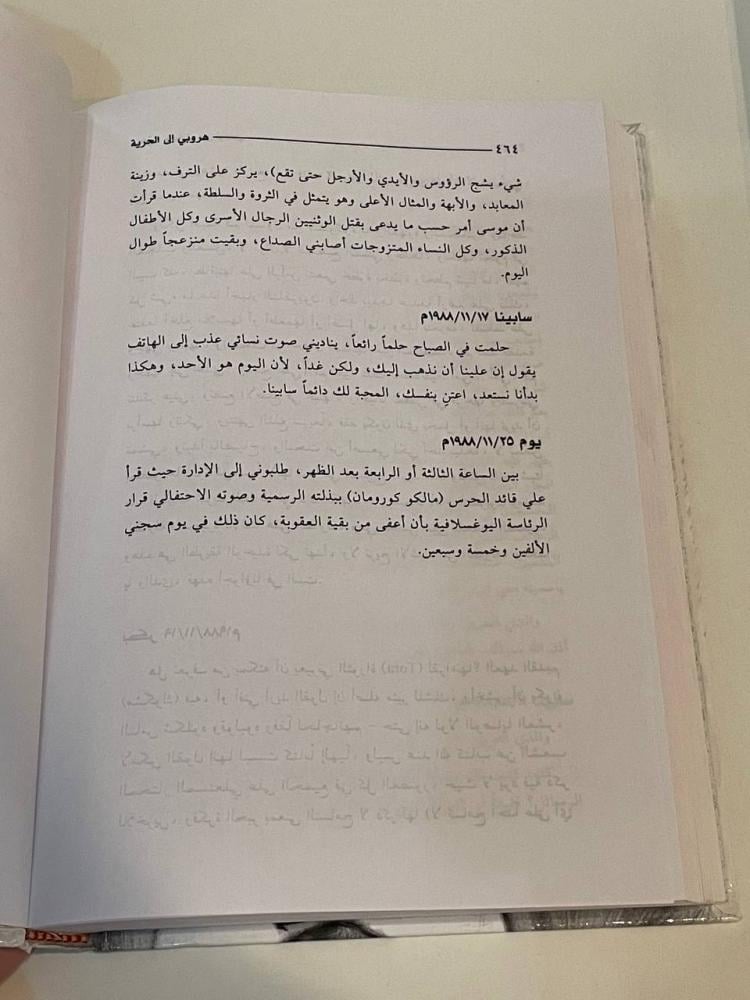 ٤٦٤ هروبي إلى الحرية
شيء يشج الرؤوس والأيدي والأرجل حتى تقع)، يركز على الترف، وزينة
المعابد، والأبهة والمثال الأعلى وهو يتمثل في الثروة والسلطة، عندما قرأت
أن موسى أمر حسب ما يدعى بقتل الوثنيين الرجال الأسرى وكل الأطفال
الذكور، وكل النساء المتزوجات أصابني الصداع، وبقيت منزعجاً طوال
اليوم.
سابينا ١٩٨٨/١١/١٧م
حلمت في الصباح حلماً رائعاً، يناديني صوت نسائي عذب إلى الهاتف
يقول إن علينا أن نذهب إليك، ولكن غداً، لأن اليوم هو الأحد، وهكذا
بدأنا نستعد، اعتنِ بنفسك، المحبة لك دائماً سابينا.
يوم ١٩٨٨/١١/٢٥م
بين الساعة الثالثة أو الرابعة بعد الظهر، طلبوني إلى الإدارة حيث قرأ
علي قائد الحرس (مالكو كورومان) ببذلته الرسمية وصوته الاحتفالي قرار
الرئاسة اليوغسلافية بأن أعفى من بقية العقوبة، كان ذلك في يوم سجني
الألفين وخمسة وسبعين.